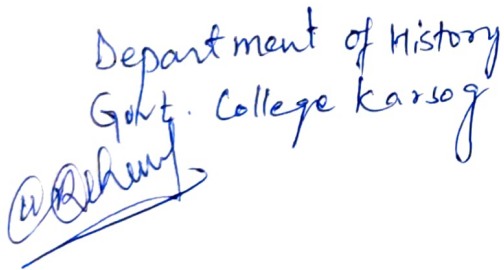 Department of History
Govt. College Karsog